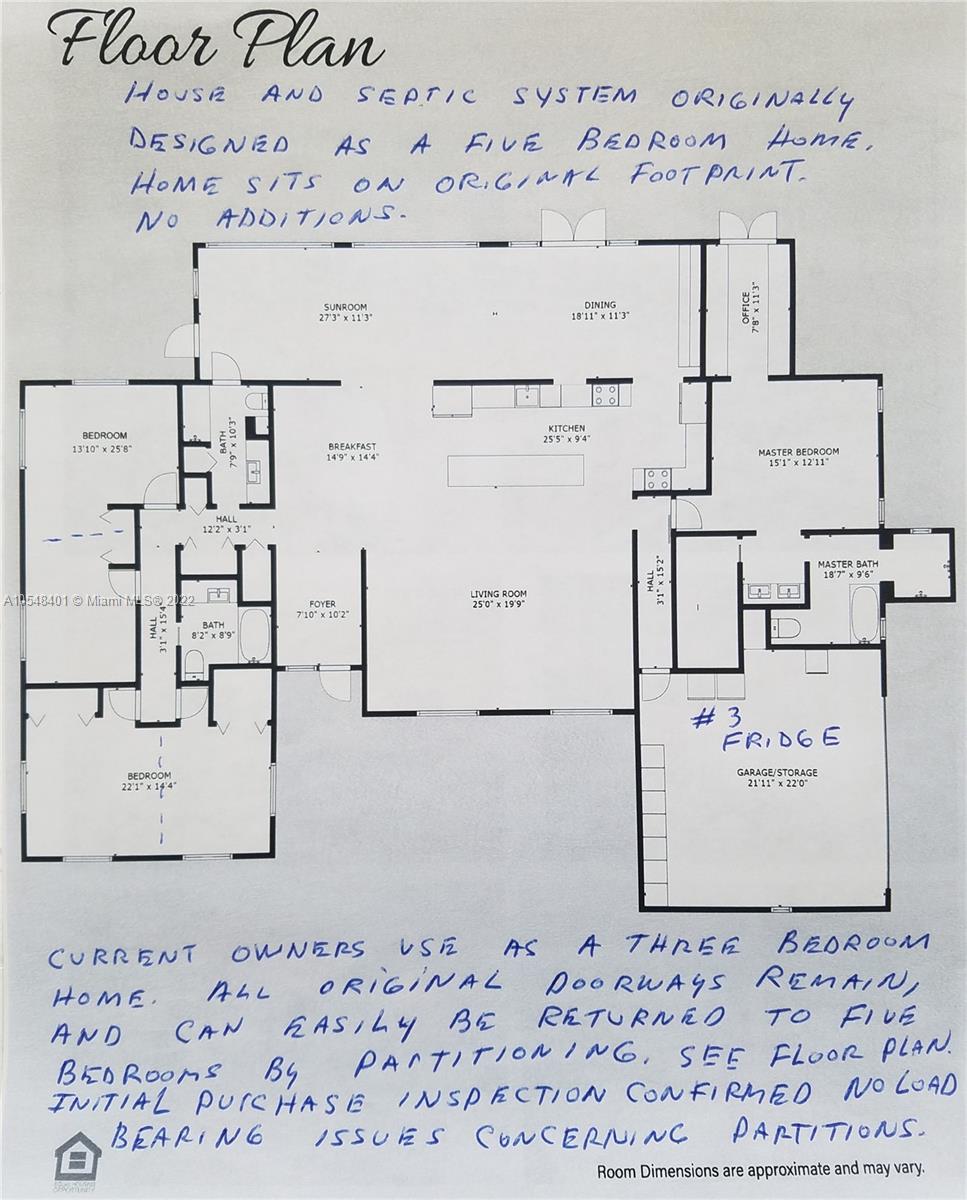 Floor Plan
HOUSE AND SEPTIC SYSTEM ORIGINALLY
DESIGNED AS A FIVE BEDROOM HOME.
HOME SITS ON ORIGINAL FOOTPRINT.
NO ADDITIONS.
SUNROOM
27'3" x 11'3"
DINING
18'11" x 11'3"
OFFICE
7'8" x 11'3"
BEDROOM
13'10" x 25'8"
BATH
7'9" x 10'3"
BREAKFAST
14'9" x 14'4"
KITCHEN
25'5" x 9'4"
MASTER BEDROOM
15'1" x 12'11"
HALL
12'2" x 3'1"
HALL
3'1" x 15'4"
BATH
8'2" x 8'9"
FOYER
7'10" x 10'2"
LIVING ROOM
25'0" x 19'9"
HALL
3'1" x 15'2"
MASTER BATH
18'7" x 9'6"
A10548401 © Miami MLS® 2022
BEDROOM
22'1" x 14'4"
# 3
FRIDGE
GARAGE/STORAGE
21'11" x 22'0"
CURRENT OWNERS USE AS A THREE BEDROOM
HOME. ALL ORIGINAL DOORWAYS REMAIN,
AND CAN EASILY BE RETURNED TO FIVE
BEDROOMS BY PARTITIONING. SEE FLOOR PLAN.
INITIAL PURCHASE INSPECTION CONFIRMED NO LOAD
BEARING ISSUES CONCERNING PARTITIONS.
EQUAL HOUSING
OPPORTUNITY
Room Dimensions are approximate and may vary.